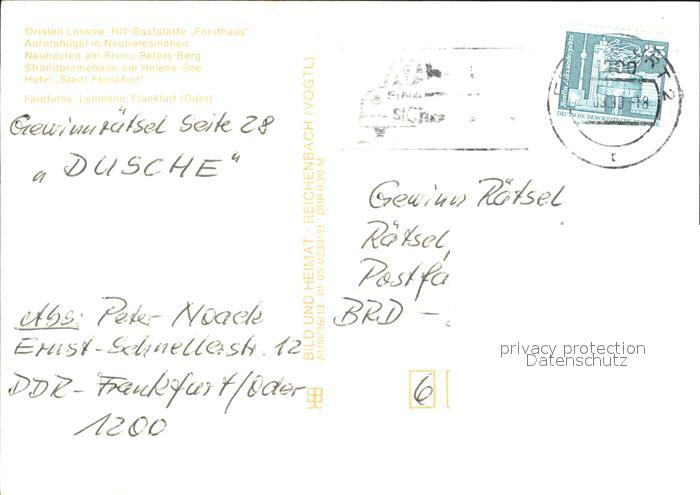 Ortsteil Lossow, HO-Gaststätte „Forsthaus"
Aurorahügel in Neuberesinchen
Neubauten am Bruno-Peters-Berg
Strandpromenade am Helene-See
Hotel „Stadt Frankfurt"
Farbfotos: Lehmann, Frankfurt (Oder)
Gewinnrätsel Seite 28
„DUSCHE"
Abs: Peter Noack
Ernst-Schnellerstr. 12
DDR-Frankfurt/Oder
1200
BILD UND HEIMAT · REICHENBACH (VOGTL)
A1/III/26/13 · 01 05 0233/31 · DDR 0,20 M
25
Berlin, Alexanderplatz
Gewinn Rätsel
Rätsel,
Postfa
BRD -
6
privacy protection
Datenschutz